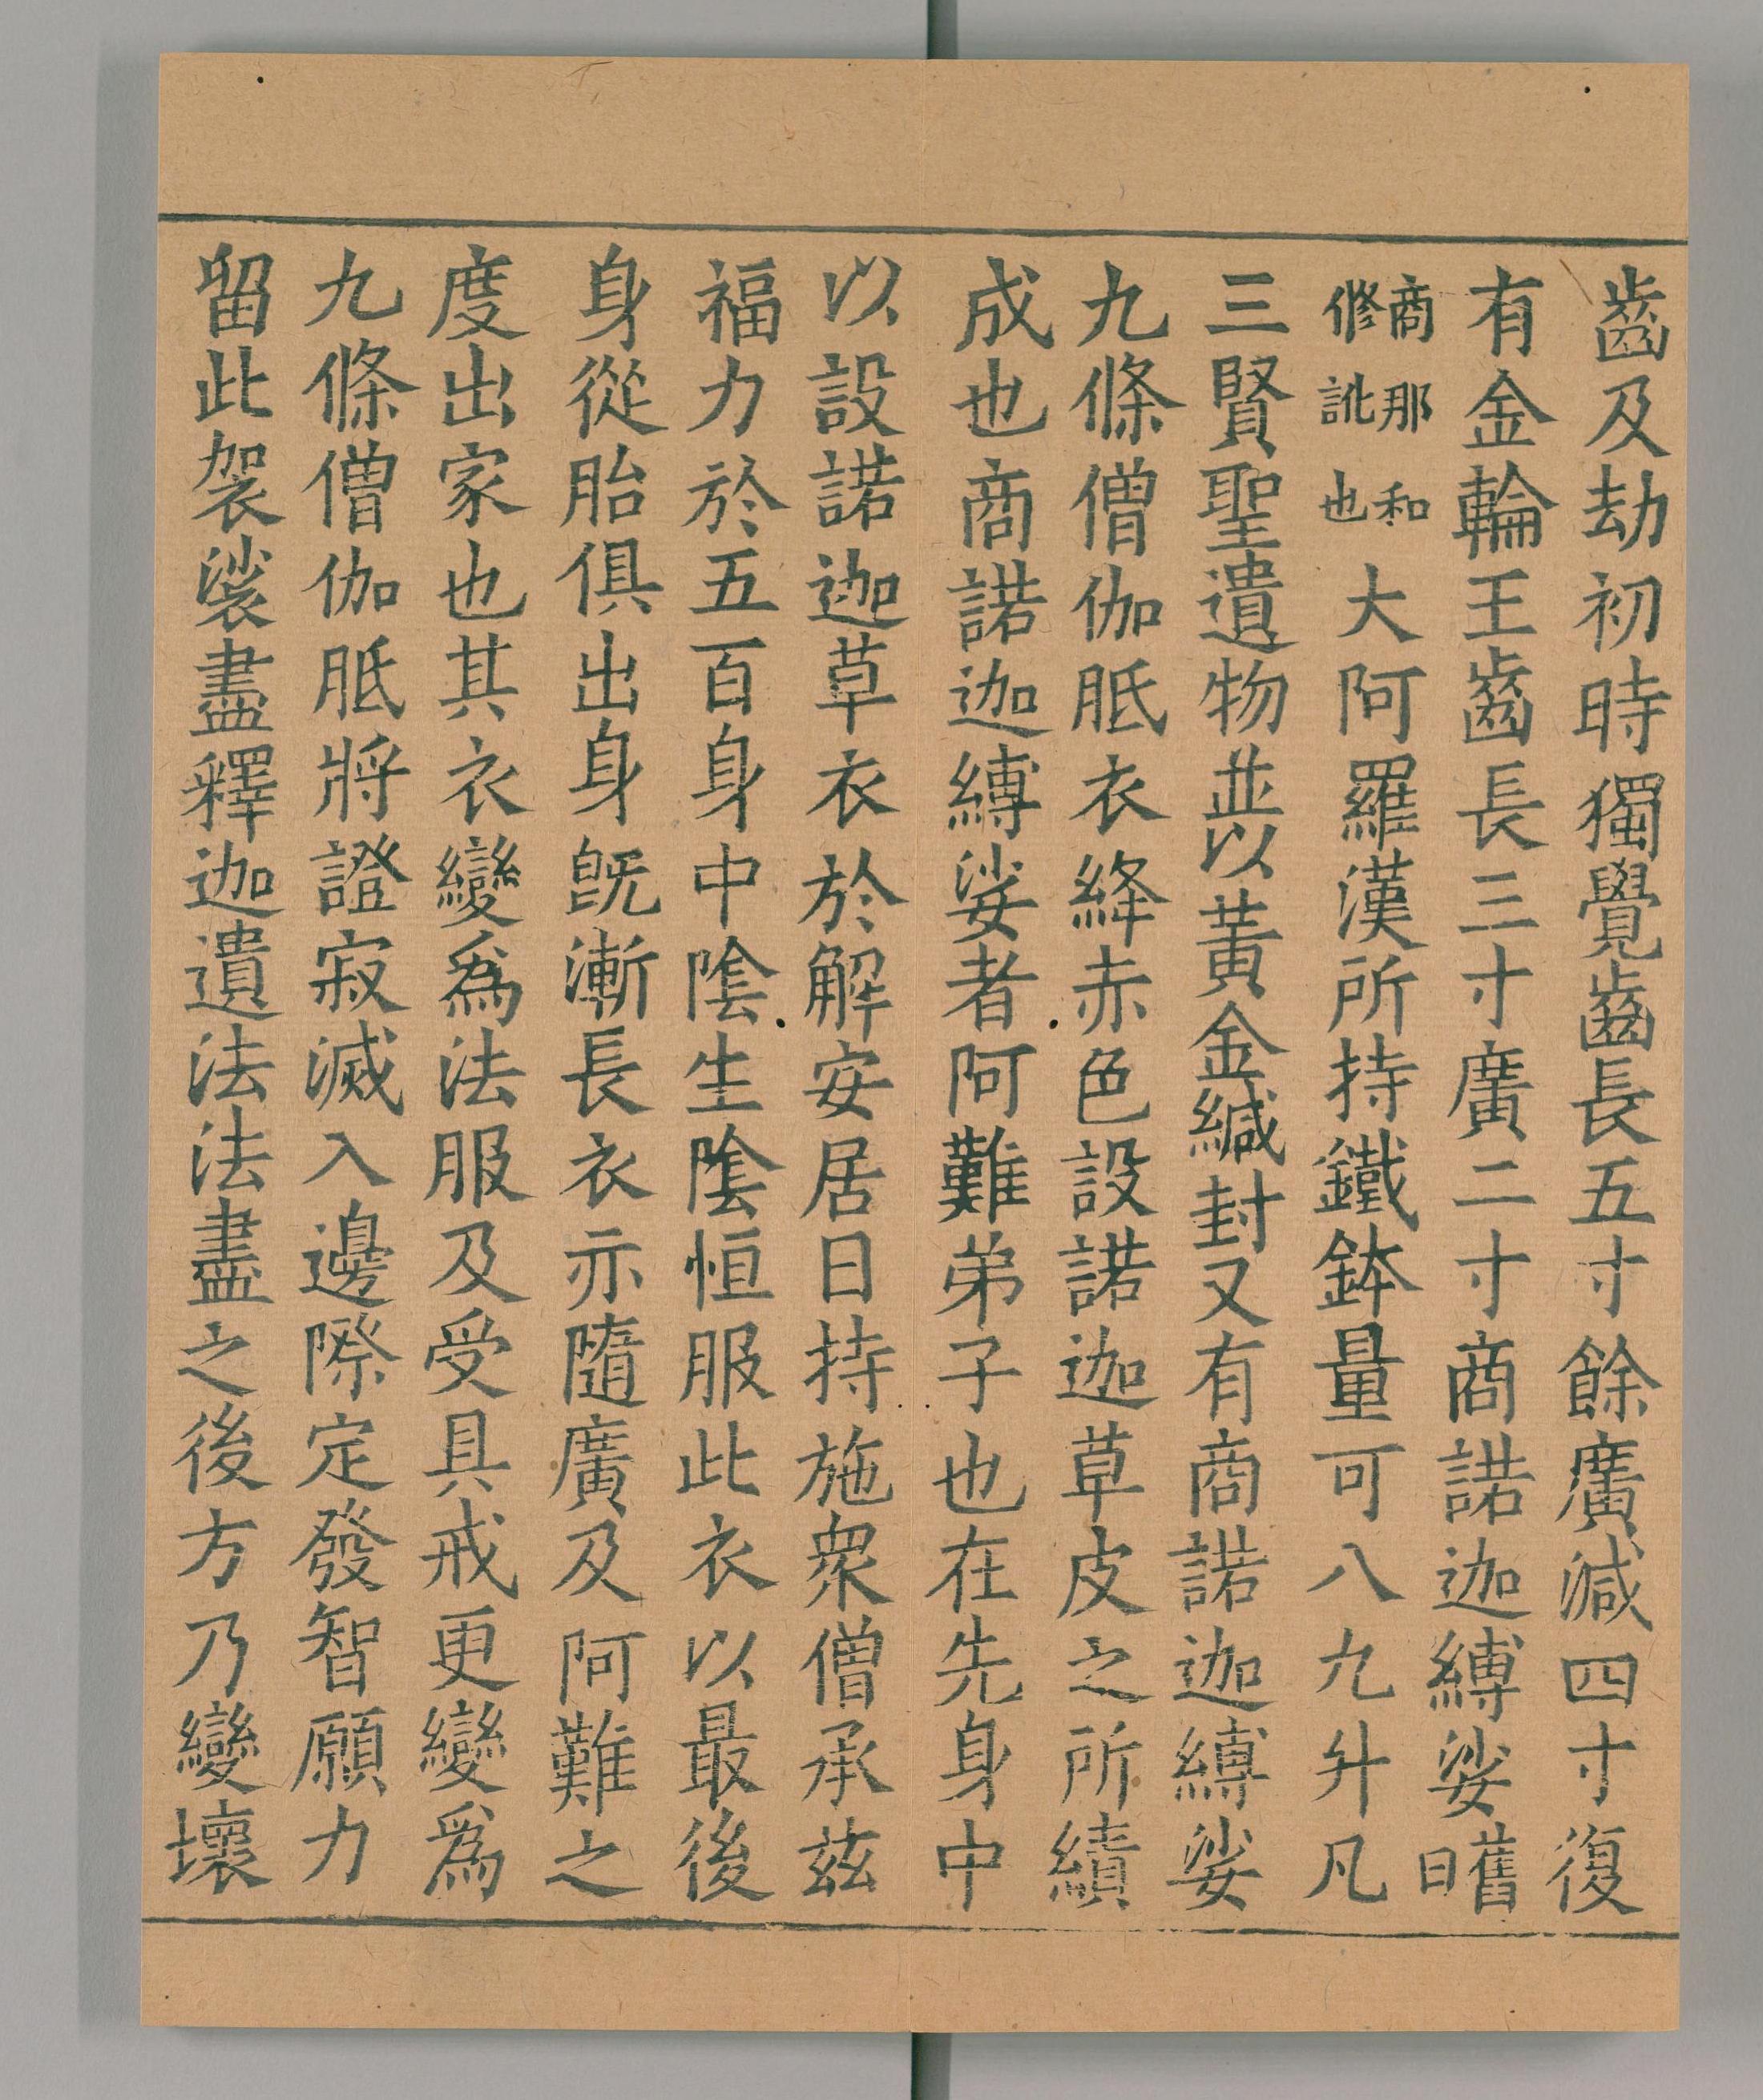 齒及劫初時獨覺齒長五寸餘廣减四寸復
有金輪王齒長三寸廣二寸商諾迦縛娑舊曰
商那和修訛也大阿羅漢所持鐵鉢量可八九升凡
三賢聖遺物並以黃金緘封又有商諾迦縛娑
九條僧伽胝衣絳赤色設諾迦草皮之所績
成也商諾迦縛娑者阿難弟子也在先身中
以設諾迦草衣於解安居日持施衆僧承茲
福力於五百身中陰生陰恒服此衣以最後
身從胎俱出身旣漸長衣亦隨廣及阿難之
度出家也其衣變爲法服及受具戒更變爲
九條僧伽胝將證寂滅入邊際定發智願力
留此袈裟盡釋迦遺法法盡之後方乃變壞